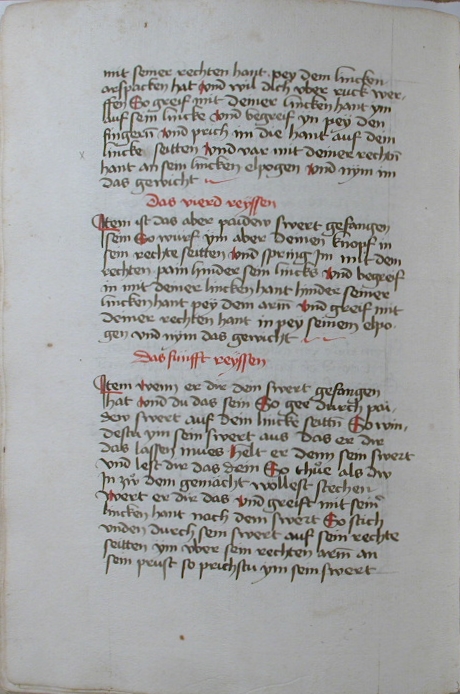 mit seiner rechten hant pey dem lincken
arspacken hat vnd wil dich vber ruck wer-
ffen So greif mit deiner lincken hant ym
auf sein lincke vnd begreif yn pey den
fingern vnd prich im die hant auf dein
lincke seitten vnd var mit deiner rechtn̄
hant an sein lincken elpogen vnd nym im
das gewicht
das vierd reyssen
Item ist das aber paidew swert gefangen
sein So wurf ym aber deinen knopf in
sein rechte seitten vnd spring Im mit dem
rechten pain hinder sein lincks vnd begreif
in mit deiner lincken hant hinder seiner
lincken hant pey dem arm vnd greif mit
deiner rechten hant in pey seinem elpo-
gen vnd nym das gewicht
das funfft reyssen
Item wenn er dir dein swert gefangen
hat vnd du das sein So gee durch pai-
dew swert auf dein lincke seittn̄ So win-
destu ym sein swert aus das er dir
das lassen mues helt er denn sein swert
vnd lest dir das dein So thue als dw
In zw dem gemächt wollest stechen
wert er dir das vnd greift mit seiner
lincken hant nach dem swert So stich
vnden durch sein swert auf sein rechte
seitten ym vber sein rechten arm an
sein prust so prichstu ym sein swert